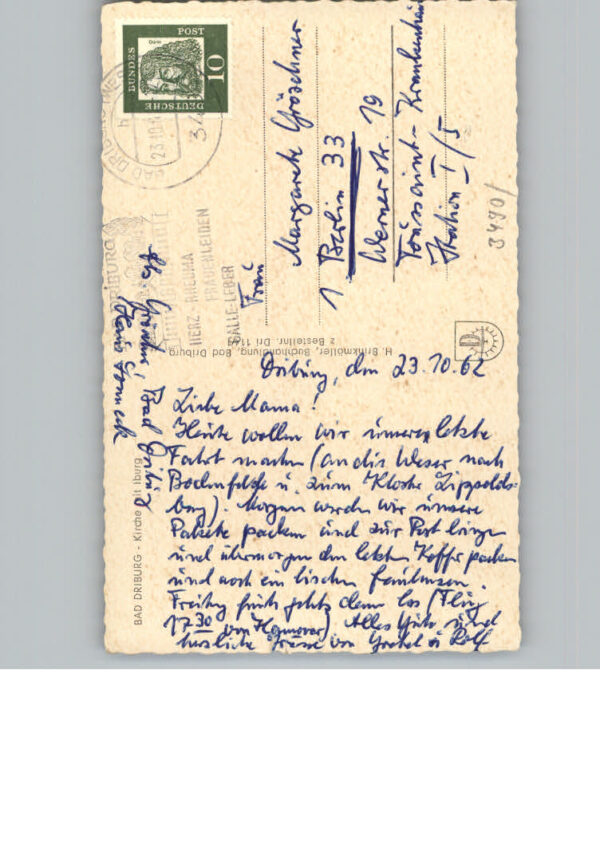 Driburg, den 23.10.62
Liebe Mama!
Heute wollen wir unsere letzte
Fahrt machen (an die Weser nach
Bodenfelde u. zum Kloster Lippolds-
berg). Morgen werden wir unsere
Pakete packen und zur Post bringen
und übermorgen den letzten Koffer packen
und noch ein bischen faulenzen.
Freitag früh gehts dann los (Flug
17.30 von Hannover) Alles Gute und
herzliche Grüsse von Gretel u Rolf
Frau
Margarete Gröschner
1 Berlin 33
Wernerstr. 19
Toussaint-Krankenhaus
Station I/5
3490/
Bad Driburg
Haus
DEUTSCHE
BUNDES
POST
10
BAD DRIBURG
23.10.
HERZ RHEUMA
FRAUENLEIDEN
GALLE-LEBER
H. Brinkmöller, Buchhandlung, Bad Driburg
BAD DRIBURG - Kirche mit Iburg
D